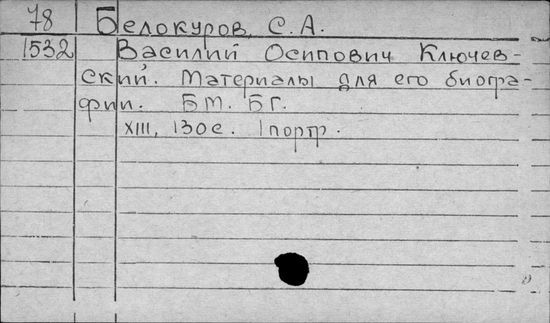 78 Белокуров, С. А.
1532 Василий Осипович Ключев-
ский. Материалы для его биогра-
фии. Б.М. Б.Г.
XIII, 130 с. 1 портр.